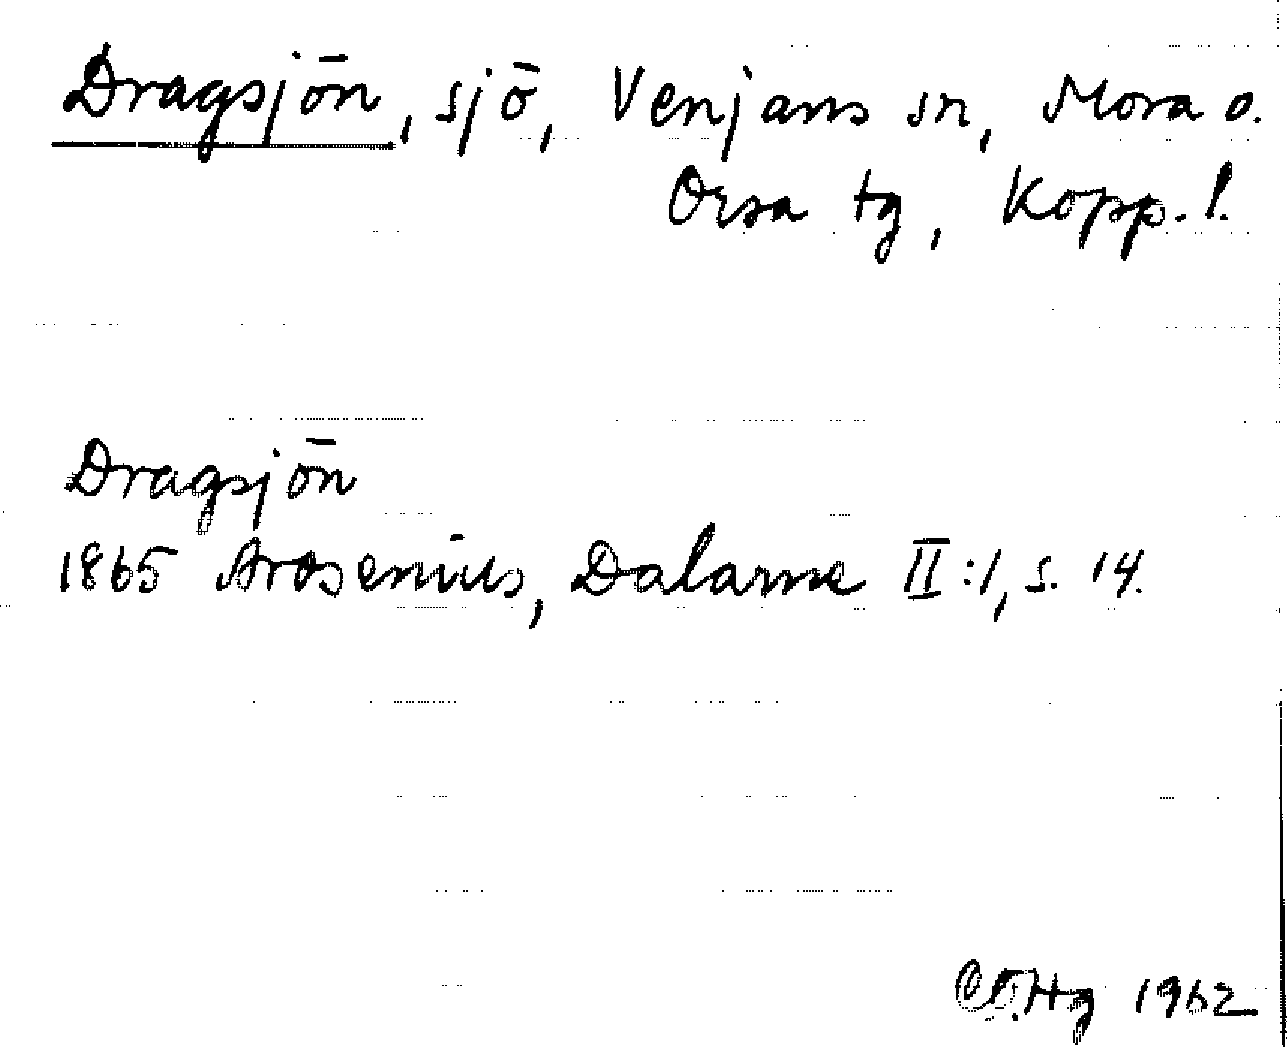 Dragsjön, sjö, Venjans sn, Mora o.
Orsa tg, Kopp. l.
Dragsjön
1865 Arosenius, Dalarne II:1, s. 14.
Hg 1962